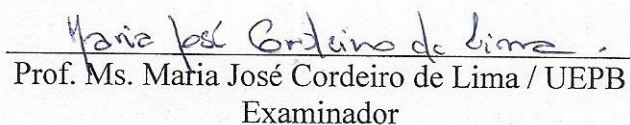 Maria José Cordeiro de Lima.
Prof. Ms. Maria José Cordeiro de Lima / UEPB
Examinador